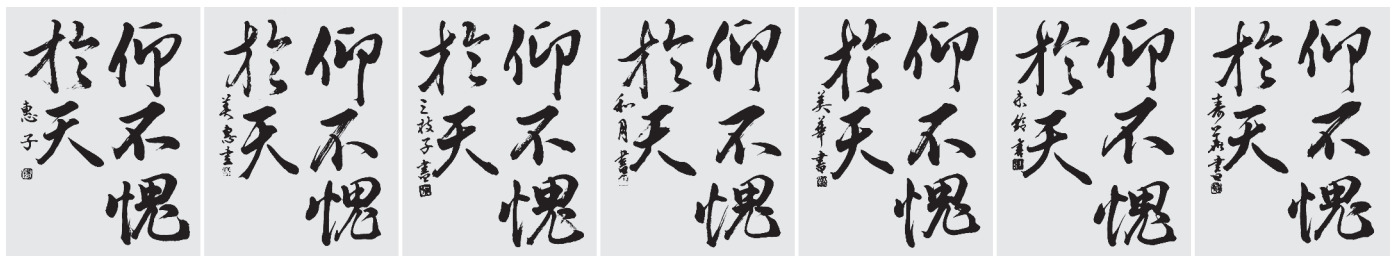 仰不愧
於天
惠子
仰不愧
於天
美惠書
仰不愧
於天
三枝子書
仰不愧
於天
和月書
仰不愧
於天
美華書
仰不愧
於天
京鈴書
仰不愧
於天
寿美書